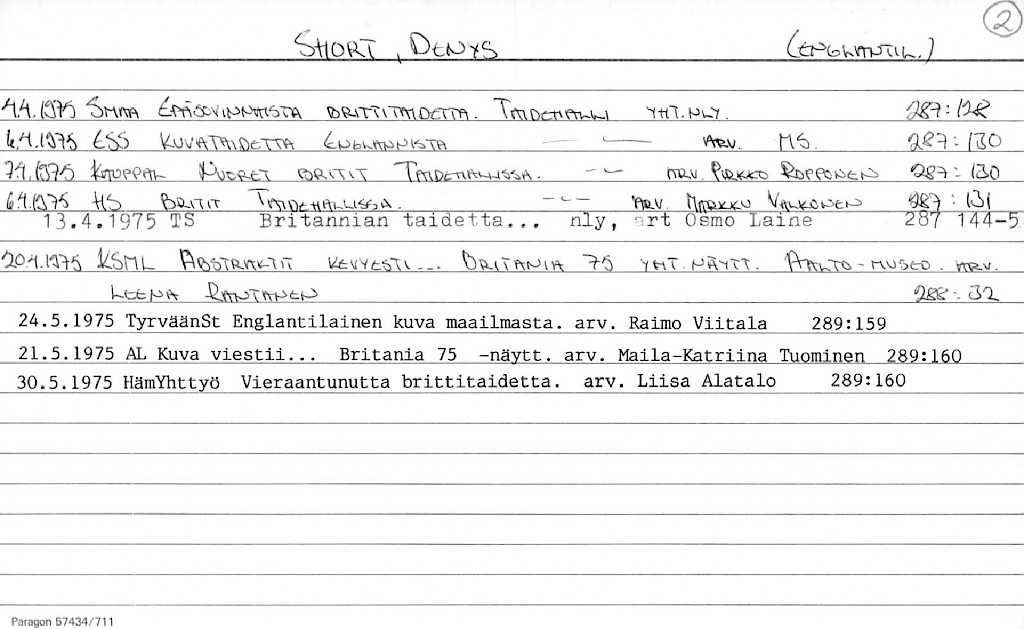 2
SHORT, DENYS (ENGLANTIL.)
4.4.1975 SMAA EPÄSOVINNAISTA BRITTITAIDETTA. TAIDEHALLI YHT.NLY. 287:128
6.4.1975 ESS KUVATAIDETTA ENGLANNISTA —〃— ARV. MS. 287:130
7.4.1975 KAUPPAL NUORET BRITIT TAIDEHALLISSA. -〃- ARV. PIRKKO ROPPONEN 287:130
6.4.1975 HS BRITIT TAIDEHALLISSA. -〃- ARV. MARKKU VALKONEN 287:131
13.4.1975 TS Britannian taidetta... nly, art Osmo Laine 287 144-5
20.4.1975 KSML ABSTRAKTIT KEVYESTI... BRITANIA 75 YHT.NÄYTT. AALTO-MUSEO. ARV.
LEENA RANTANEN 288:32
24.5.1975 TyrväänSt Englantilainen kuva maailmasta. arv. Raimo Viitala 289:159
21.5.1975 AL Kuva viestii... Britania 75 -näytt. arv. Maila-Katriina Tuominen 289:160
30.5.1975 HämYhttyö Vieraantunutta brittitaidetta. arv. Liisa Alatalo 289:160
Paragon 57434/711